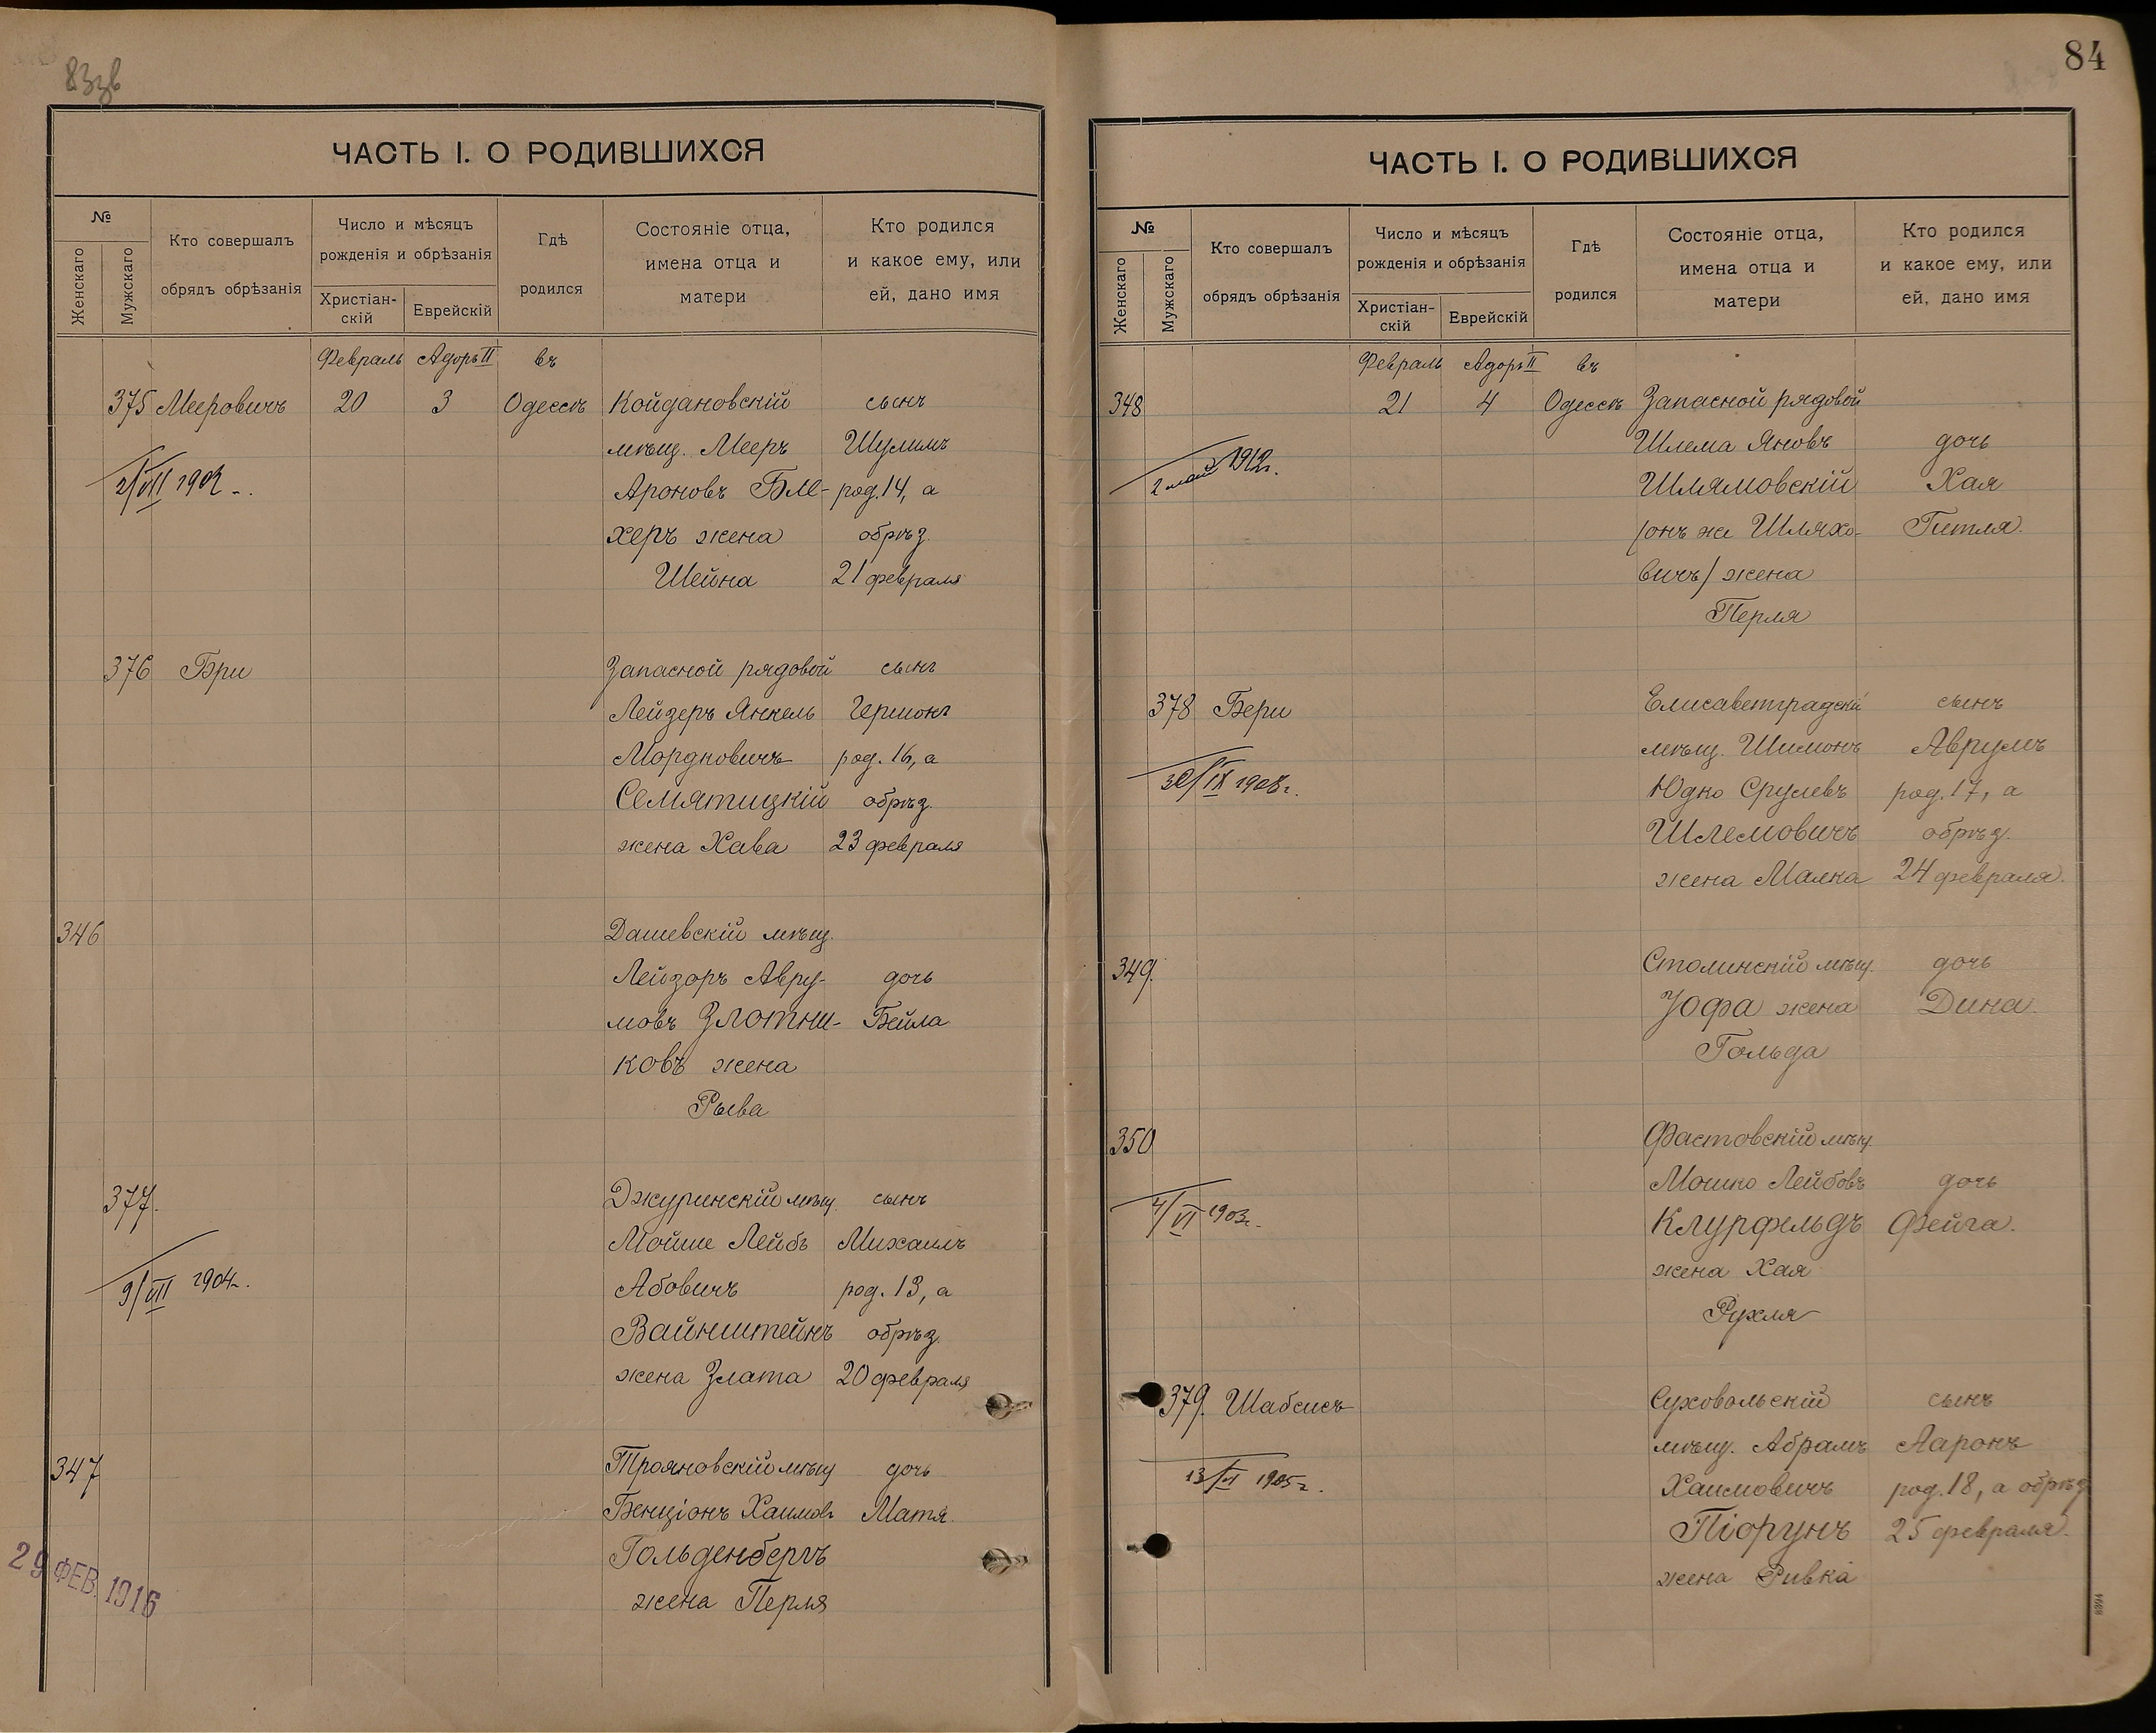 83зв
ЧАСТЬ I. О РОДИВШИХСЯ
№
Женскаго
Мужскаго
Кто совершалъ
обрядъ обрѣзанія
Число и мѣсяцъ
рожденія и обрѣзанія
Христіан-
скій
Еврейскій
Гдѣ
родился
Состояніе отца,
имена отца и
матери
Кто родился
и какое ему, или
ей, дано имя
Февраль Адоръ II въ
375 Мееровичъ 20 3 Одессѣ Койдановскій сынъ
мѣщ. Мееръ Шулимъ
Ароновъ Бле- род. 14, а
херъ жена обрѣз.
Шейна 21 февраля
376 Бри Запасной рядовой сынъ
Лейзеръ Янкель Гершонъ
Мордковичъ род. 16, а
Семятицкій обрѣз.
жена Хава 23 февраля
346 Дашевскій мѣщ.
Лейзоръ Авру- дочь
мовъ Злотни- Бейла
ковъ жена
Рыва
377. Джуринскій мѣщ. сынъ
Мойше Лейбъ Михаилъ
9/VII 1904г. Абовичъ род. 13, а
Вайнштейнъ обрѣз.
жена Злата 20 февраля
347 Трояновскій мѣщ дочь
Бенціонъ Хаимов. Матя.
Гольденбергъ
жена Перля
29 ФЕВ. 1916
84
ЧАСТЬ I. О РОДИВШИХСЯ
№
Женскаго
Мужскаго
Кто совершалъ
обрядъ обрѣзанія
Число и мѣсяцъ
рожденія и обрѣзанія
Христіан-
скій
Еврейскій
Гдѣ
родился
Состояніе отца,
имена отца и
матери
Кто родился
и какое ему, или
ей, дано имя
Февраль Адоръ II въ
348 21 4 Одессѣ Запасной рядовой
Шлема Яновъ дочь
2 май 1912г. Шлямовскій Хая
/онъ же Шляхо- Гитля.
вичъ/ жена
Перля
378 Бери Елисаветградскій сынъ
мѣщ. Шимонъ Аврумъ
30/IX 1908г. Юдко Срулевъ род. 17, а
Шлемовичъ обрѣз.
жена Малка 24 февраля.
349. Столинскій мѣщ. дочь
Іофа жена Дина.
Гольда
350 Фастовскій мѣщ.
Мошко Лейбовъ дочь
4/VI 1903г. Клурфельдъ Фейга.
жена Хая
Рухля
379. Шабсисъ Суховольскій сынъ
мѣщ. Абрамъ Ааронъ
13/VI 1905г. Хаимовичъ род. 18, а обрѣз
Піорунъ 25 февраля.
жена Ривка